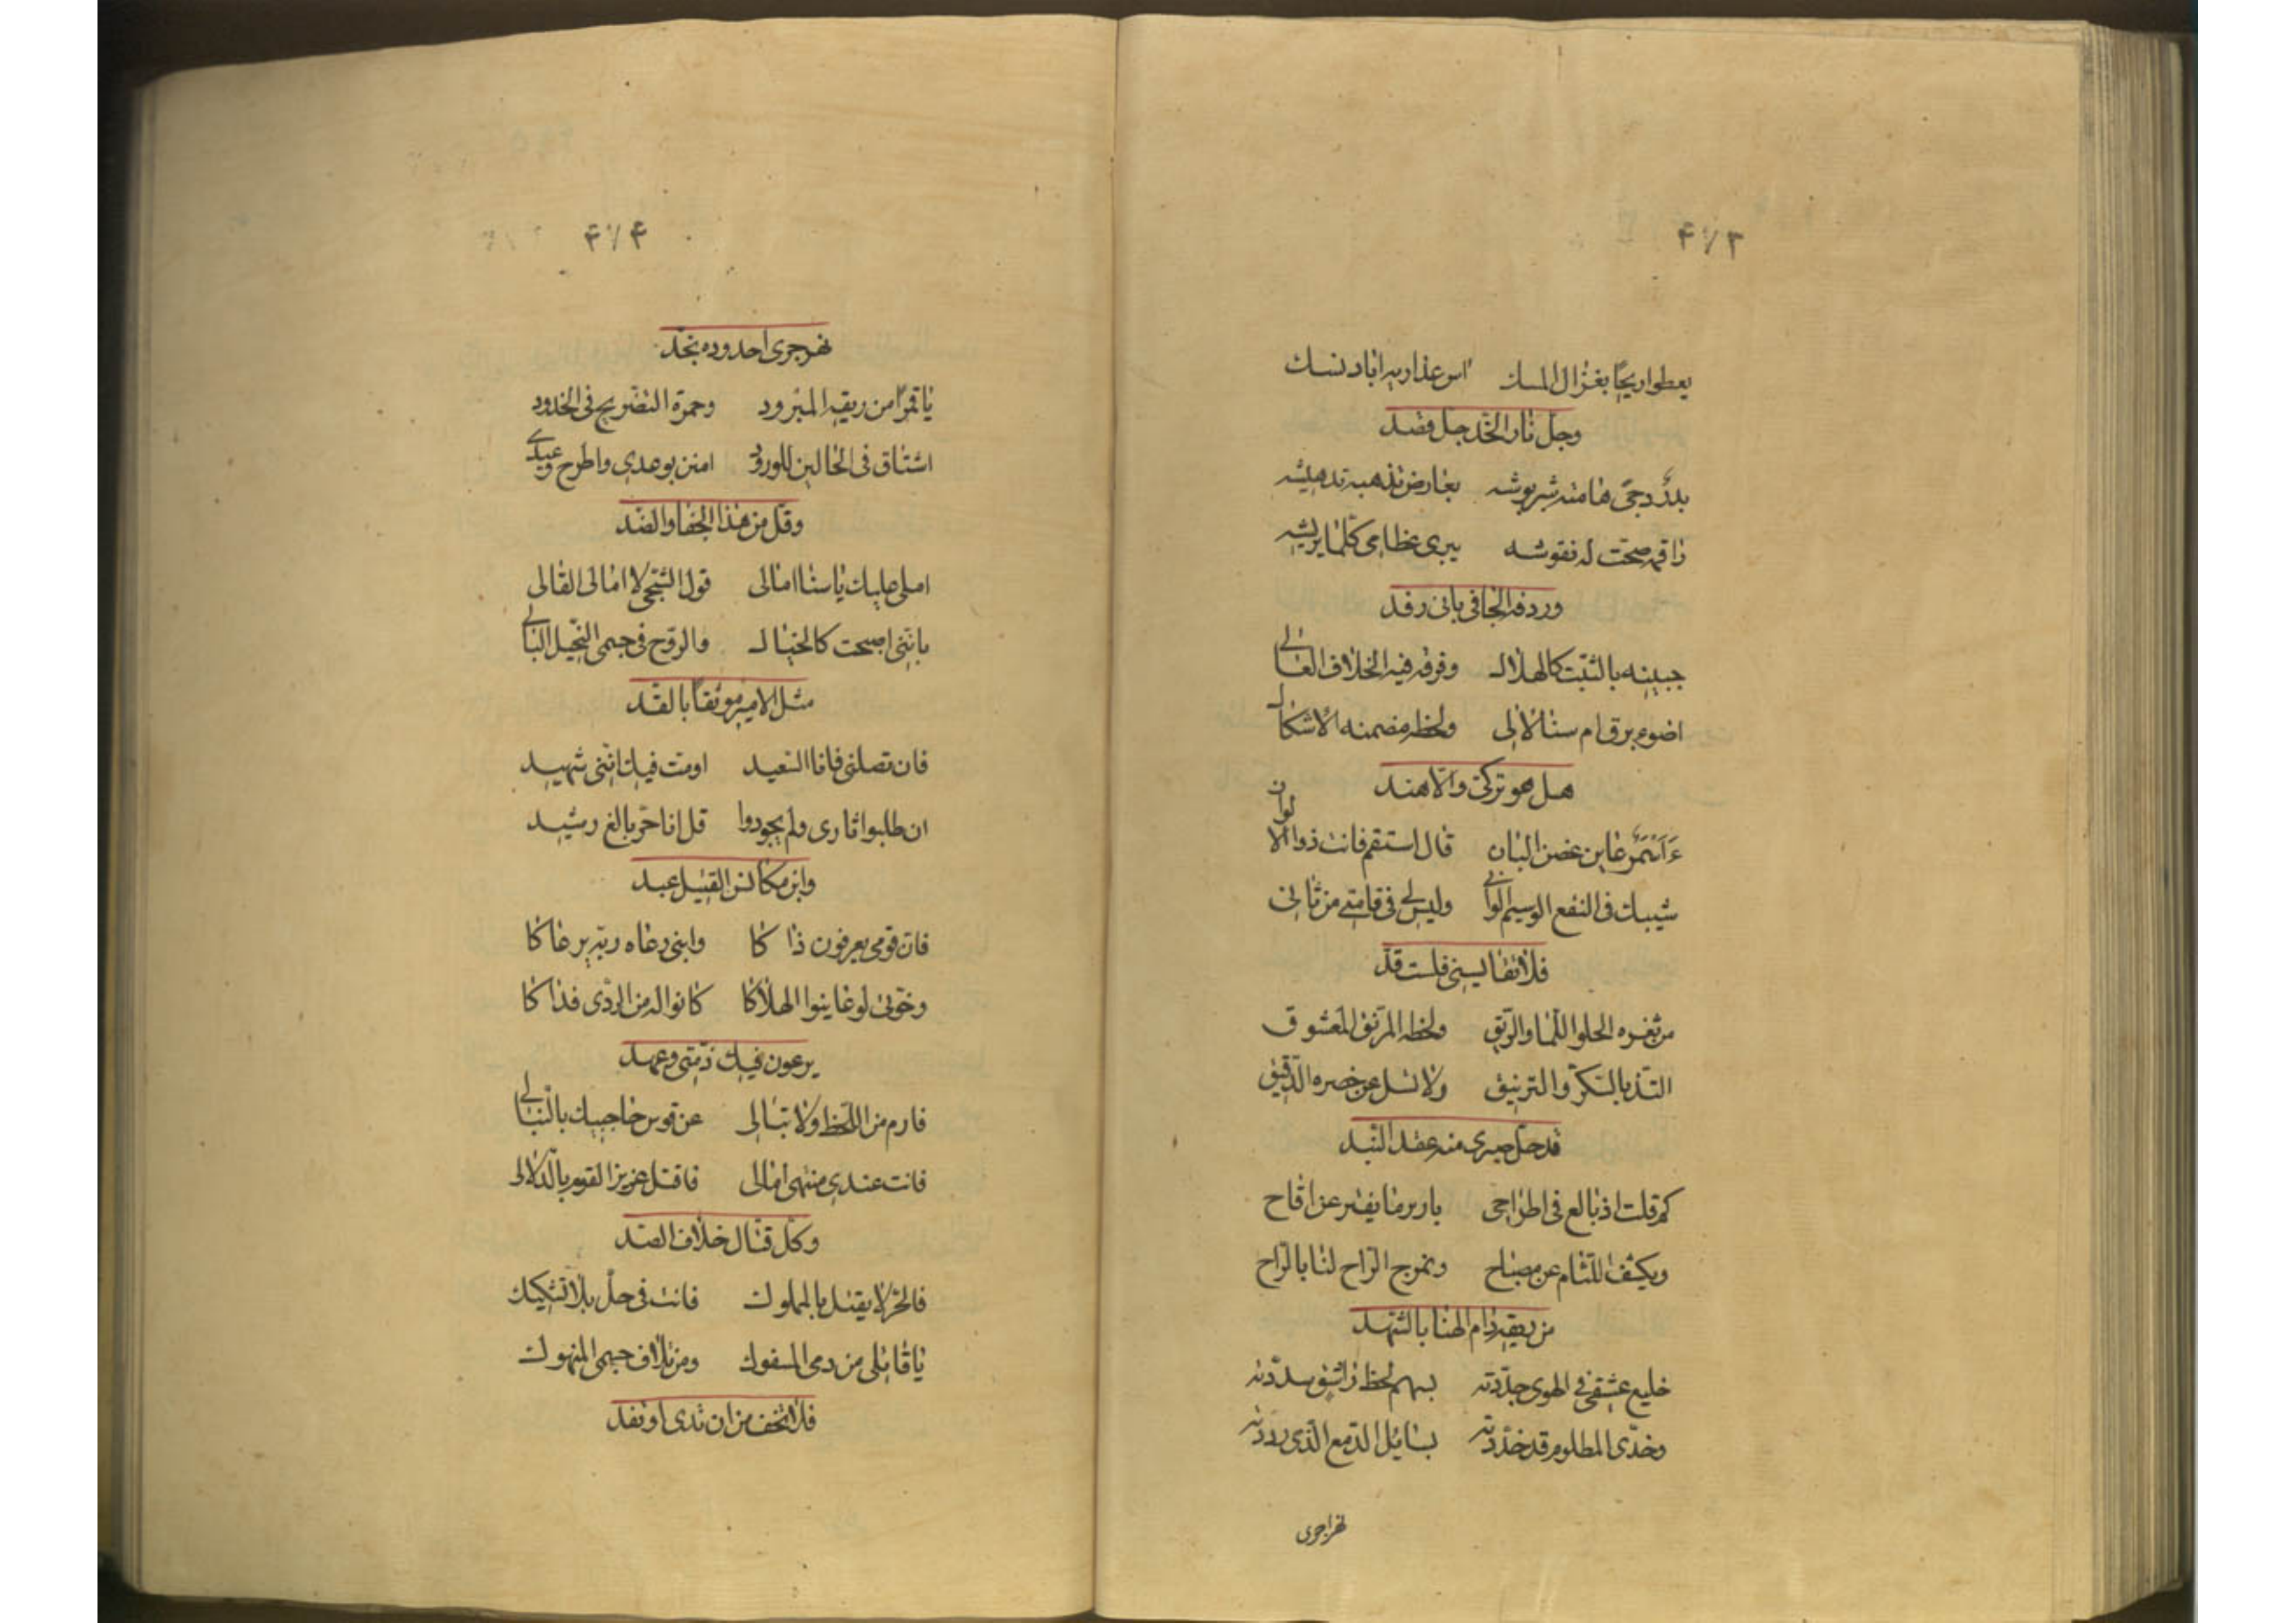 ۴۷۳
يعطوا ريحًا بغزال المسك اس عذاريه اباد نسك
وجل نار الخد جل وقد
بدر دجى هامته شربوشه بعارض تذهبه تدهيشه
ذا قمر صحت له نقوشه يبرى عظامى كلما يريشه
وردفه الجافى بانى رفد
جبينه بالثبت كالهلال وفرقه فيه الخلاف العالى
اضوء برق ام سنا لالى ولحظه مضمنه الاشكال
هل هو تركى والا هند
ءاسمر عاين غصن البان قال استقم فانت ذو الوان
شيبك فى النفع الوسيم الوانى وليس لى فى قامتى من ثانى
فلا تقايسنى فلست قد
من ثغره الحلو اللما والريق ولحظه المرنق المعشوق
التذ بالسكر والترنيق ولا تسل عن خصره الدقيق
قد حل صبرى منه عقد البند
كم قلت اذ بالع فى اطراحى بارير ما يفتر عن اقاح
ويكشف اللثام عن مصباح وتمزج الراح لنا بالراح
من ريقه دام الهنا بالشهد
خليع عشقى فى الهوى جددته بسهم لحظ راشق سددته
وخدى المظلوم قد خددته بسايل الدمع الذى رددته
نهرا جرى
۴۷۴
نهر جرى احدوده بخد
يا قمرًا من ريقه المبرود وحمرة التضريج فى الخدود
اشتاق فى الحالين للورود امنن بوعدى واطرح وعيدى
وقل من هذا الجفا والصد
املى عليك يا سنا امالى قول الشجى لا امالى القالى
باننى اصبحت كالخيال والروح فى جسمى النحيل البالى
مثل الاسير موثقًا بالقد
فان تصلنى فانا السعيد او مت فيك اننى شهيد
ان طلبوا ثارى ولم يجودوا قل انا حر بالغ رشيد
وابن مكانس القتيل عبد
فان قومى يعرفون ذاكا وابنى دعاه ربه يرعاكا
وخوتى لو عاينوا الهلاكا كانوا له من الردى فداكا
يرعون فيك ذمتى وعهد
فارم من اللحظ ولا تبالى عن قوس حاجبيك بالنبال
فانت عندى منتهى امالى فاقتل عزيز القوم بالدلال
وكل قتال خلاف الصد
فالحر لا يقتل بالمملوك فانت فى حل بلا تشكيك
يا قاتلى من دمى المسفوك ومن تلاف جسمى المنهوك
فلا تخف من ان تدى او تفد